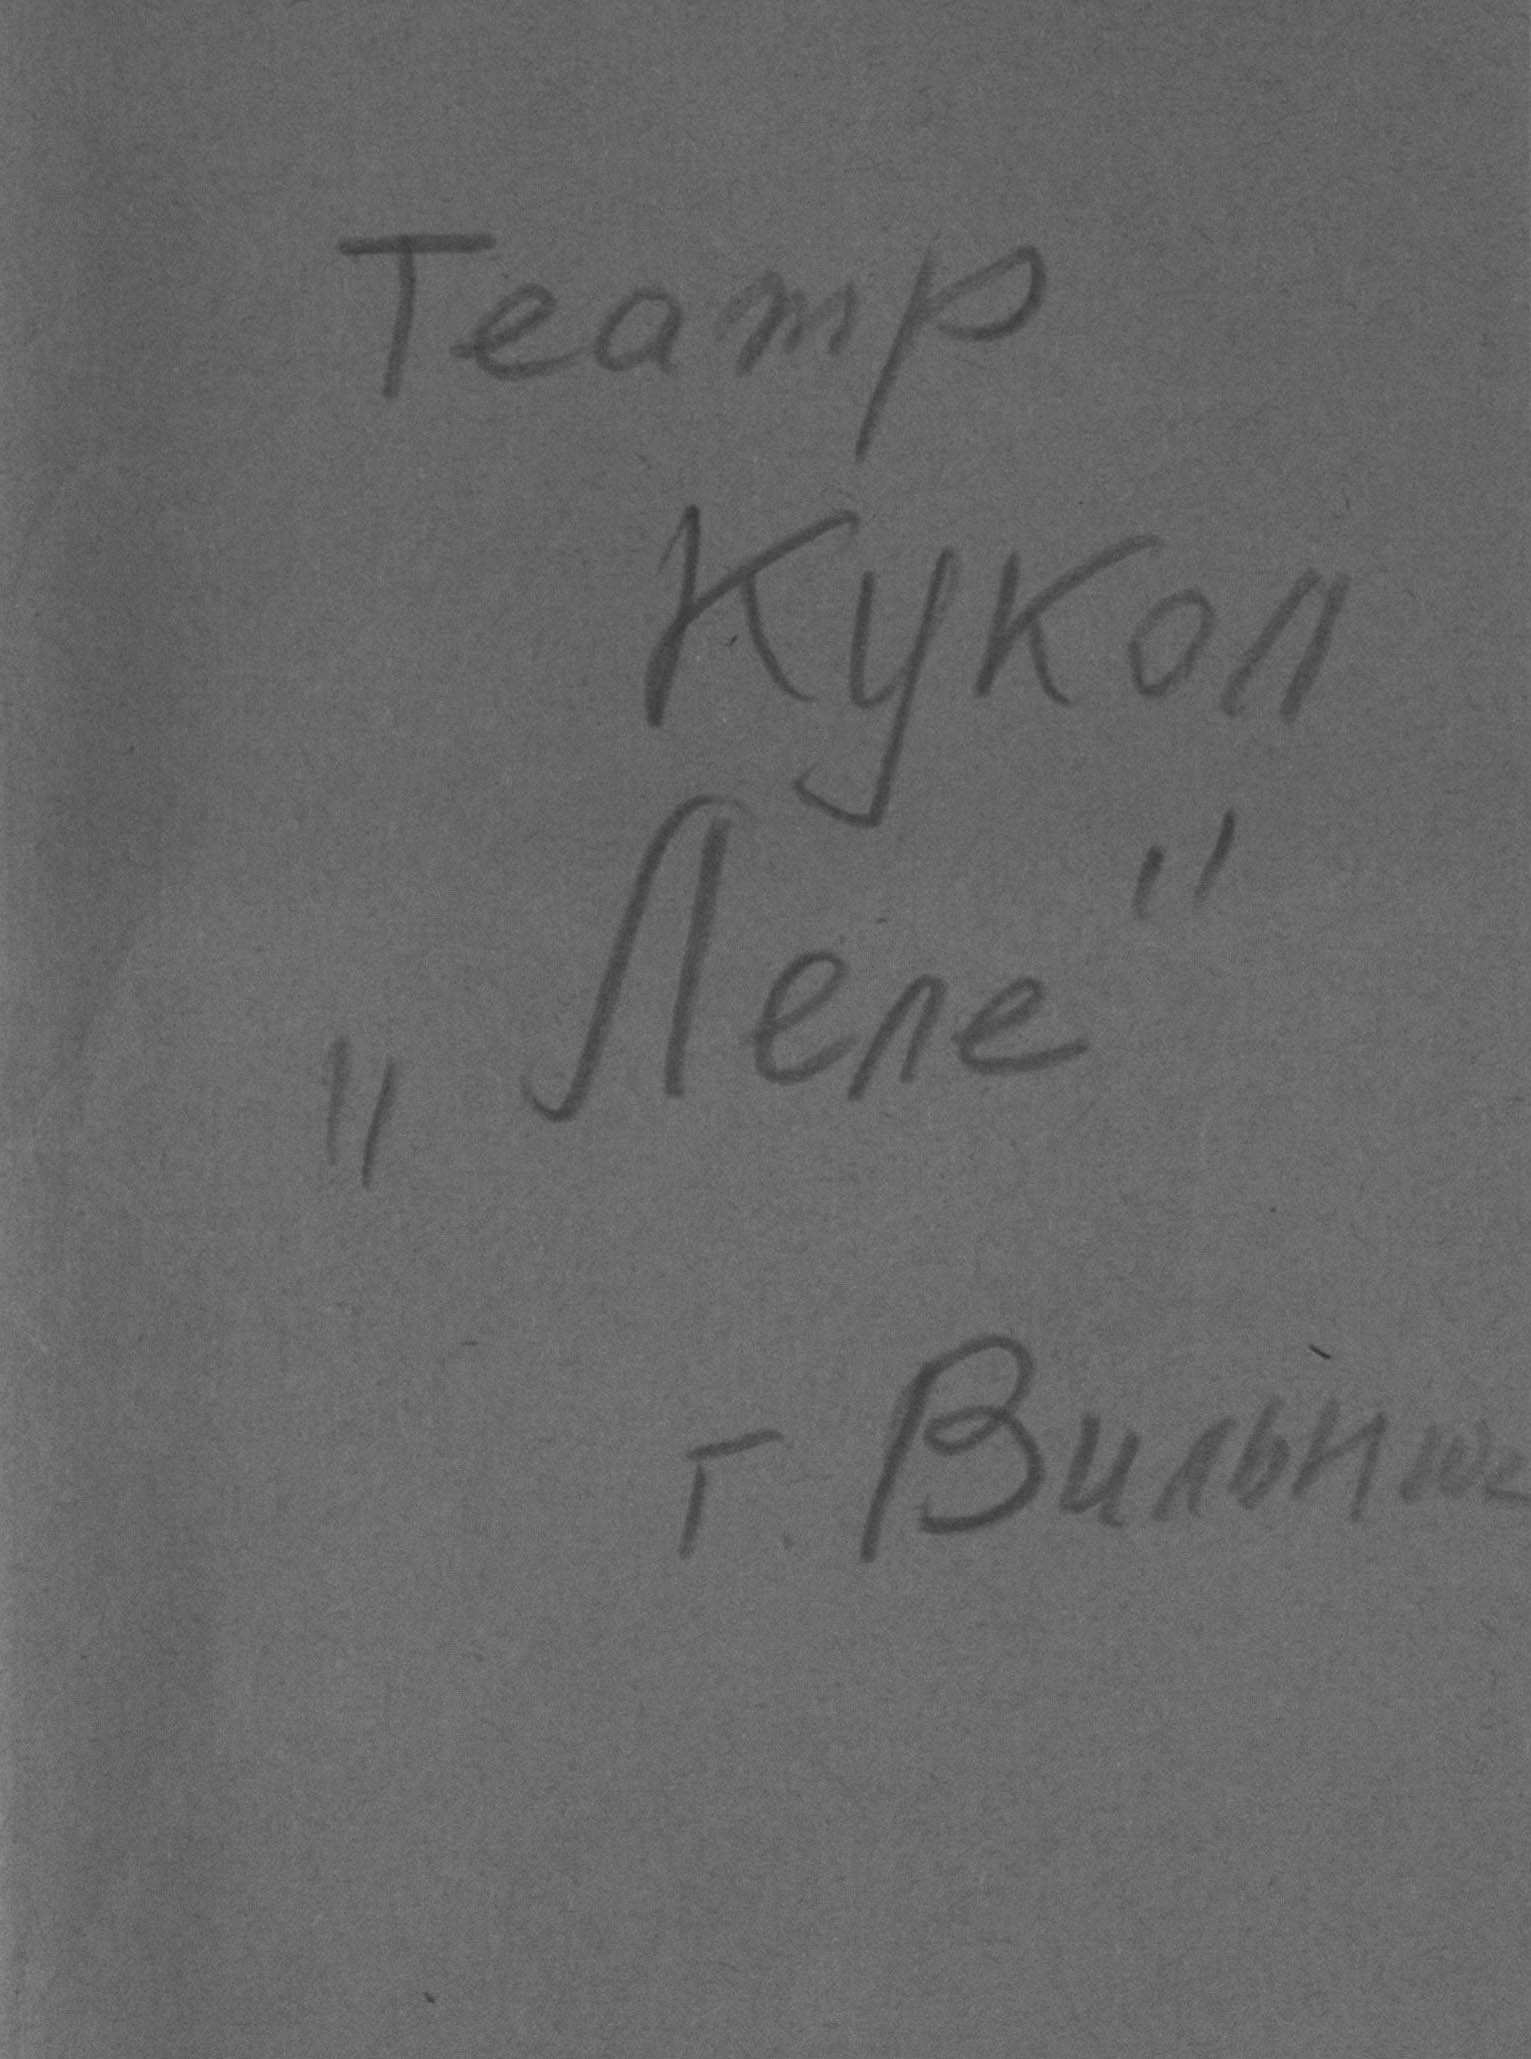 Театр
Кукол
„Леле"
г. Вильнюс